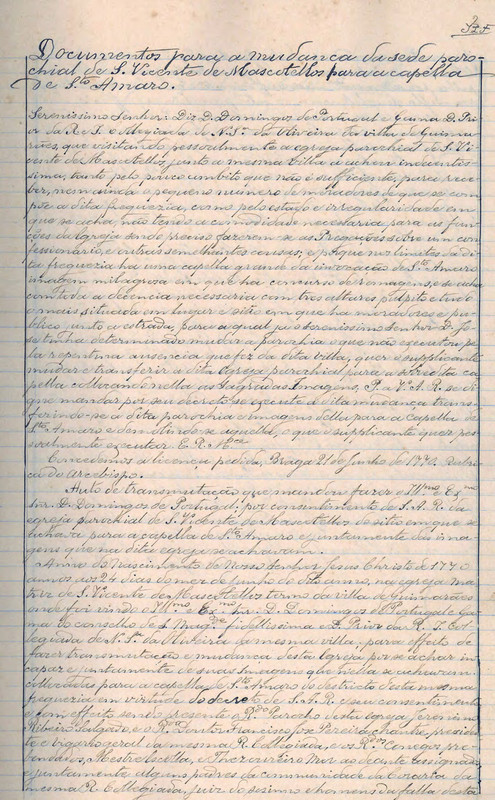 Documentos para a mudança da sede paro-
chial de S. Vicente de Mascotellos para a capella
de Sto Amaro.
Serenissimo Senhor: Diz D. Domingos de Portugal e Gama D. Pri-
or da R. I. e Collegiada de N. Sª da Oliveira da villa de Guima-
rães, que visitando pessoalmente a egreja parochial de S. Vi-
cente de Mascotellos, junto a mesma villa a achou indecentis-
sima, tanto pelo pouco ambito que não é sufficiente, para rece-
ber, nem ainda o pequeno numero de moradores de que se com-
põe a dita freguezia, como pelo estado e irregularidade em
que se acha, não tendo a comodidade necessaria para as fun-
ções da Egreja sendo preciso fazerem-se as Pregações sobre um con-
fessionario, e outras semelhantes causas; e porque nos limites da di-
ta freguezia ha uma capella grande da invocação de Sto Amaro
imagem milagrosa em que ha concurso de romagens, e se acha
com toda a decencia necessaria com tres altares, pulpito e tudo
e mais situada em lugar e sitio em que ha moradores e pu-
blico junto á estrada, para a qual já o serenissimo Senhor D. Jo-
sé tinha determinado mudar a parochia o que não executou, pe-
la repentina ausencia que fez da dita villa, quer o supplicante
mudar e transferir a dita Egreja parochial para a sobredita ca-
pella collocando nella as Sagradas Imagens, P. a V. A. R. se di-
gne mandar por seu decreto se execute a dita mudança trans-
ferindo-se a dita parochia e imagens della para a Capella de
Sto Amaro e demolindo-se aquella, o que o supplicante quer pes-
soalmente executar. E. R. Mce
Concedemos a licença pedida, Braga 21 de Junho de 1770. Rubri-
ca do arcebispo.
Auto de transmutação que mandou fazer o Illmo e Exmo
Snr. D. Domingos de Portugal, por consentimento de S. A. R. da
egreja parochial de S. Vicente de Mascotellos do sitio em que se
achava para a capella de Sto Amaro e juntamente das ima-
gens que na dita egreja se achavam.
Anno do Nascimento de Nosso Senhor Jesus Christo de 1770
annos aos 24 dias do mez de Junho do dito anno, na egreja ma-
triz de S. Vicente de Mascotellos termo da villa de Guimarães
onde foi vindo o Illmo e Exmo Snr. D. Domingos de Portugal e Ga-
ma do conselho de S. Magde fidelissima e D. Prior da R. I. Col-
legiada de N. Sª da Oliveira da mesma villa, para effeito de
fazer transmutação e mudança desta Egreja por se achar in-
capaz e juntamente de suas imagens que nella se achavam
collocadas para a capella de Sto Amaro do destricto desta mesma
freguezia em virtude do decreto de S. A. R. e seu consentimento
e com effeito sendo presente o Rdo Parocho desta egreja Jeronimo
Ribeiro Salgado e o Rdo Doutor Francisco José Pereira, chantre, presiden-
te e vigario geral da mesma R. Collegiada, e os Rdos Conegos, pre-
bendados, Mestre escolla, e Thezoureiro Mor ao deante assignados
e juntamente alguns padres da communidade da Coraria da
mesma R. Collegiada, juiz do sesino e homens da falla desta